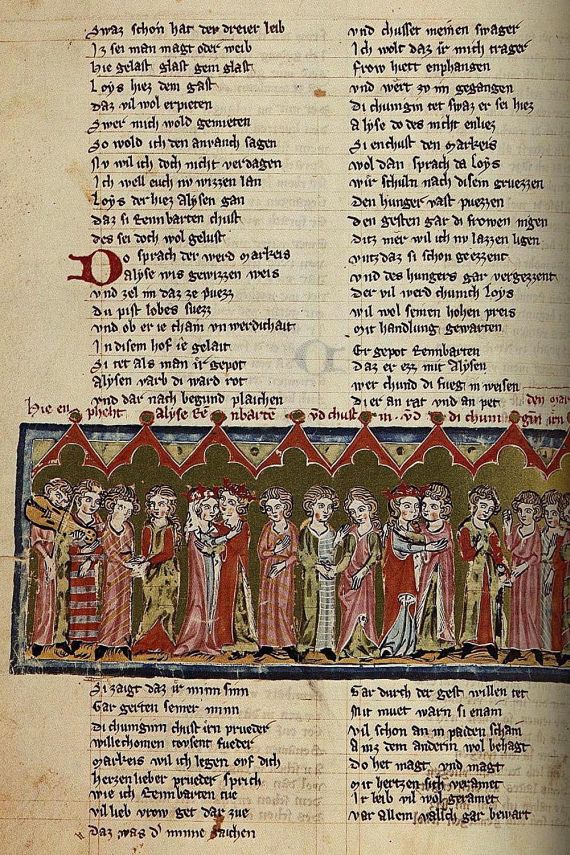 Swaz schon hat der dreier leib
Iz sei man magt oder weib
Hie gelast glast gem glast
Loys hiez dem gast
Daz vil wol erpieten
Swer mich wold gemieten
So wold ich den anvanch sagen
Nv wil ich doch nicht verdagen
Ich well euch nv wizzen lan
Loys der hiez alysen gan
daz si Rennbarten chust
des sei doch wol gelust
Do sprach der werd markeis
alyse wis gewizzen weis
vnd zel im daz ze puezz
du pist lobes suezz
vnd ob er ie cham vn werdichait
In disem hof ie gelait
Si tet als man ir gepot
alysen varb di ward rot
vnd dar nach begund plaichen
vnd chusset meinen swager
Ich wolt daz ir mich trager
frow hett enphangen
vnd wert zv im gegangen
di chunigin tet swaz er sei hiez
alyse do des nicht enliez
Si enchust den markeis
wol dan sprach da loys
wir schuln nach disem gruezzen
den hunger vast puezzen
den gesten gar di frowen nigen
ditz mer wil ich nv lazzen ligen
vntz daz si schon geezzent
vnd des hungers gar vergezzent
der vil werd chunich loys
wil wol seinen hohen preis
mit handlung gewarten
Er gepot Rennbarten
daz er ezz mit alysen
wer chund di fueg in weisen
di er an rat vnd an pet
Hie en pheht alyse Re nbarten vnd chust in vnd di chunigin irn
den mar
Si zaigt daz ir minn sinn
Gar gerten seiner minn
di chuniginn chust irn prueder
willechomen
markeis wil ich legen ovf dich
herzen lieber prueder sprich
wie ich Rennbarten tue
vil lieb vrow get dar zue
daz was d' minne zaichen
Gar durch der gest willen tet
Mit muet warn si enain
vil schon an in paiden schain
Ainz dem anderin wol behagt
do het magt vnd magt
mit hertzen sich veraint
Ir leib vil wol geramet
var allem valsch gar bewart